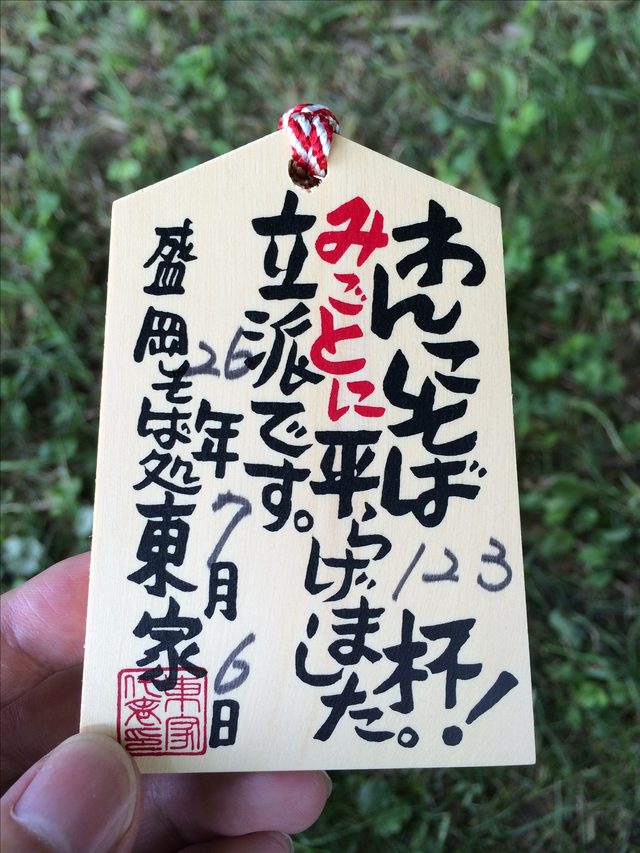 わんこそば 123 杯!
みごとに平らげました。
立派です。
26年7月6日
盛岡そば処東家
東家
代表印